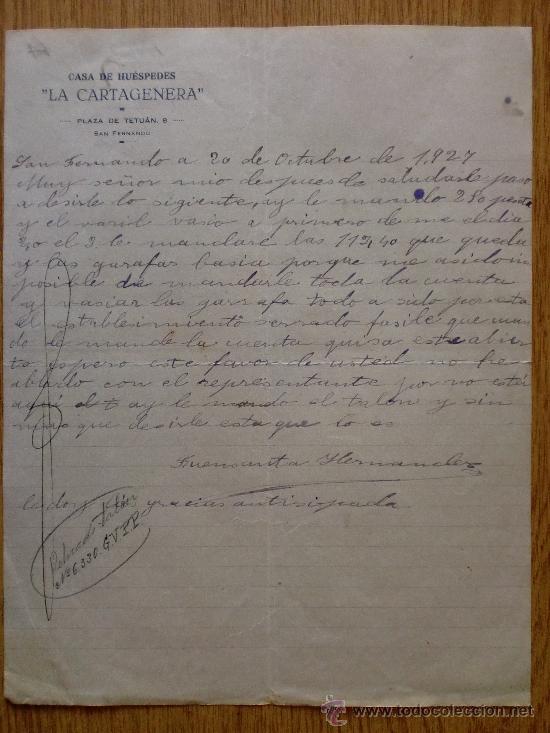 CASA DE HUÉSPEDES
"LA CARTAGENERA"
PLAZA DE TETUÁN, 8
SAN FERNANDO
San Fernando a 20 de Octubre de 1927
Muy señor mio despues de saludarle paso
a desirle lo sigiente, y le mando 250 peseta
y el varil vasio a primero de me el dia
2,0 el 3 le mandaré las 113,40 que queda
y las garafas basia porque me asido in
posible de mandarle toda la cuenta
y vasiar las garrafa todo a sido por esta
el establesimiento serrado fasile que
do le mande la cuenta quisa este abier
to espero este favor de usted no he
ablado con el representante por no esté
aquí ay le mando el talon y sin
mas que desirle esta que lo es
Fuensanta Hernandez
gracias antisipada
Nº 6.330. G.V.P.P.
todocoleccion.net